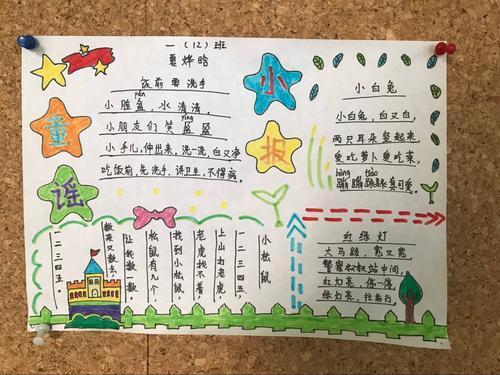 一（12）班
夏烨晗
童
谣
小
报
饭前要洗手
pén
小脸盆,水清清,
yíng
小朋友们笑盈盈
小手儿,伸出来,洗一洗,白又净
吃饭前,先洗手,讲卫生,不得病。
小白兔
小白兔,白又白,
两只耳朵竖起来,
爱吃萝卜爱吃菜,
bèng tiào
蹦蹦跳跳真可爱。
小松鼠
一二三四五,
上山打老虎
老虎找不着,
找到小松鼠
松鼠有几个,
让我数一数,
数来又数去,
一二三四五。
红绿灯
大马路,宽又宽,
警察叔叔站中间,
红灯亮,停一停,
绿灯亮,往前行。